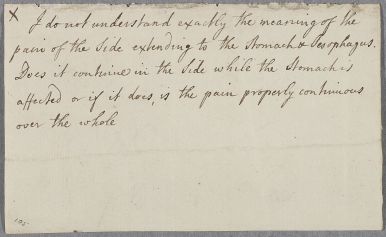 X I do not understand exactly the meaning of the
pain of the Side extending to the Stomach & Oesophagus.
Does it continue in the Side while the Stomach is
affected or if it does, is the pain properly continuous
over the whole